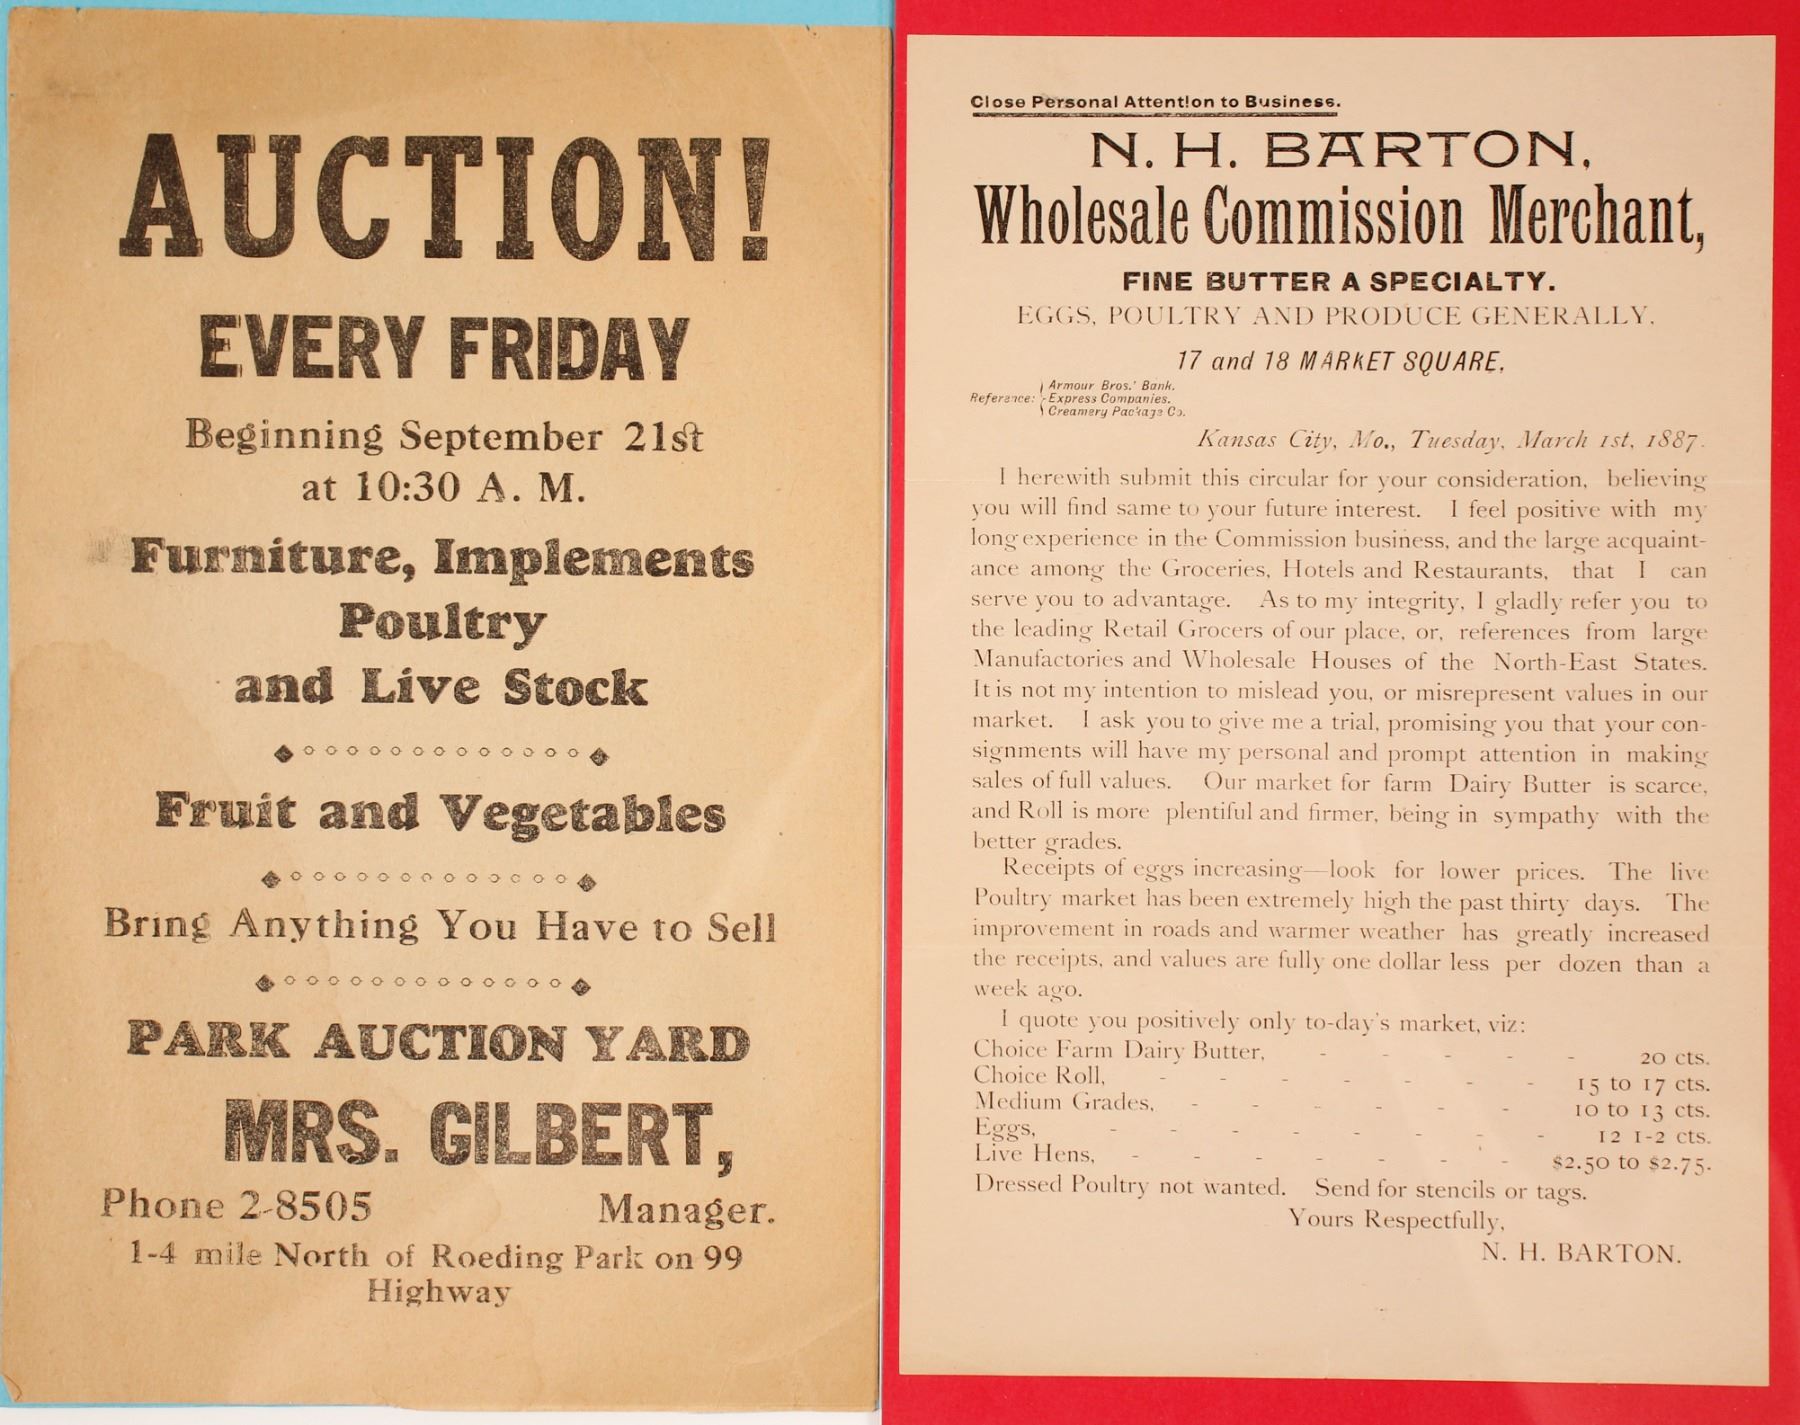 AUCTION!
EVERY FRIDAY
Beginning September 21st
at 10:30 A. M.
Furniture, Implements
Poultry
and Live Stock
Fruit and Vegetables
Bring Anything You Have to Sell
PARK AUCTION YARD
MRS. GILBERT,
Phone 2-8505 Manager.
1-4 mile North of Roeding Park on 99
Highway
Close Personal Attention to Business.
N. H. BARTON,
Wholesale Commission Merchant,
FINE BUTTER A SPECIALTY.
EGGS, POULTRY AND PRODUCE GENERALLY.
17 and 18 MARKET SQUARE,
Armour Bros.' Bank.
Reference: Express Companies.
Creamery Package Co.
Kansas City, Mo., Tuesday, March 1st, 1887.
I herewith submit this circular for your consideration, believing
you will find same to your future interest. I feel positive with my
long experience in the Commission business, and the large acquaint-
ance among the Groceries, Hotels and Restaurants, that I can
serve you to advantage. As to my integrity, I gladly refer you to
the leading Retail Grocers of our place, or, references from large
Manufactories and Wholesale Houses of the North-East States.
It is not my intention to mislead you, or misrepresent values in our
market. I ask you to give me a trial, promising you that your con-
signments will have my personal and prompt attention in making
sales of full values. Our market for farm Dairy Butter is scarce,
and Roll is more plentiful and firmer, being in sympathy with the
better grades.
Receipts of eggs increasing—look for lower prices. The live
Poultry market has been extremely high the past thirty days. The
improvement in roads and warmer weather has greatly increased
the receipts, and values are fully one dollar less per dozen than a
week ago.
I quote you positively only to-day's market, viz:
Choice Farm Dairy Butter, - - - - - 20 cts.
Choice Roll, - - - - - - - 15 to 17 cts.
Medium Grades, - - - - - - 10 to 13 cts.
Eggs, - - - - - - - - 12 1-2 cts.
Live Hens, - - - - - - - $2.50 to $2.75.
Dressed Poultry not wanted. Send for stencils or tags.
Yours Respectfully,
N. H. BARTON.